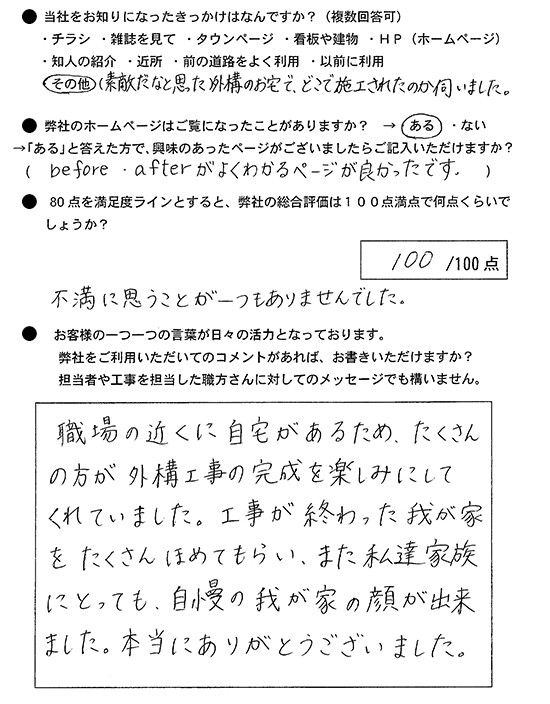 ● 当社をお知りになったきっかけはなんですか？（複数回答可）
・チラシ ・雑誌を見て ・タウンページ ・看板や建物 ・ＨＰ（ホームページ）
・知人の紹介 ・近所 ・前の道路をよく利用 ・以前に利用
その他（素敵だなと思った外構のお宅で、どこで施工されたのか伺いました。
● 弊社のホームページはご覧になったことがありますか？ → ある ・ない
→「ある」と答えた方で、興味のあったページがございましたらご記入いただけますか？
（ before・afterがよくわかるページが良かったです。 ）
● 80点を満足度ラインとすると、弊社の総合評価は１００点満点で何点くらいで
しょうか？
100 /100点
不満に思うことが一つもありませんでした。
● お客様の一つ一つの言葉が日々の活力となっております。
弊社をご利用いただいてのコメントがあれば、お書きいただけますか？
担当者や工事を担当した職方さんに対してのメッセージでも構いません。
職場の近くに自宅があるため、たくさん
の方が外構工事の完成を楽しみにして
くれていました。工事が終わった我が家
をたくさんほめてもらい、また私達家族
にとっても、自慢の我が家の顔が出来
ました。本当にありがとうございました。